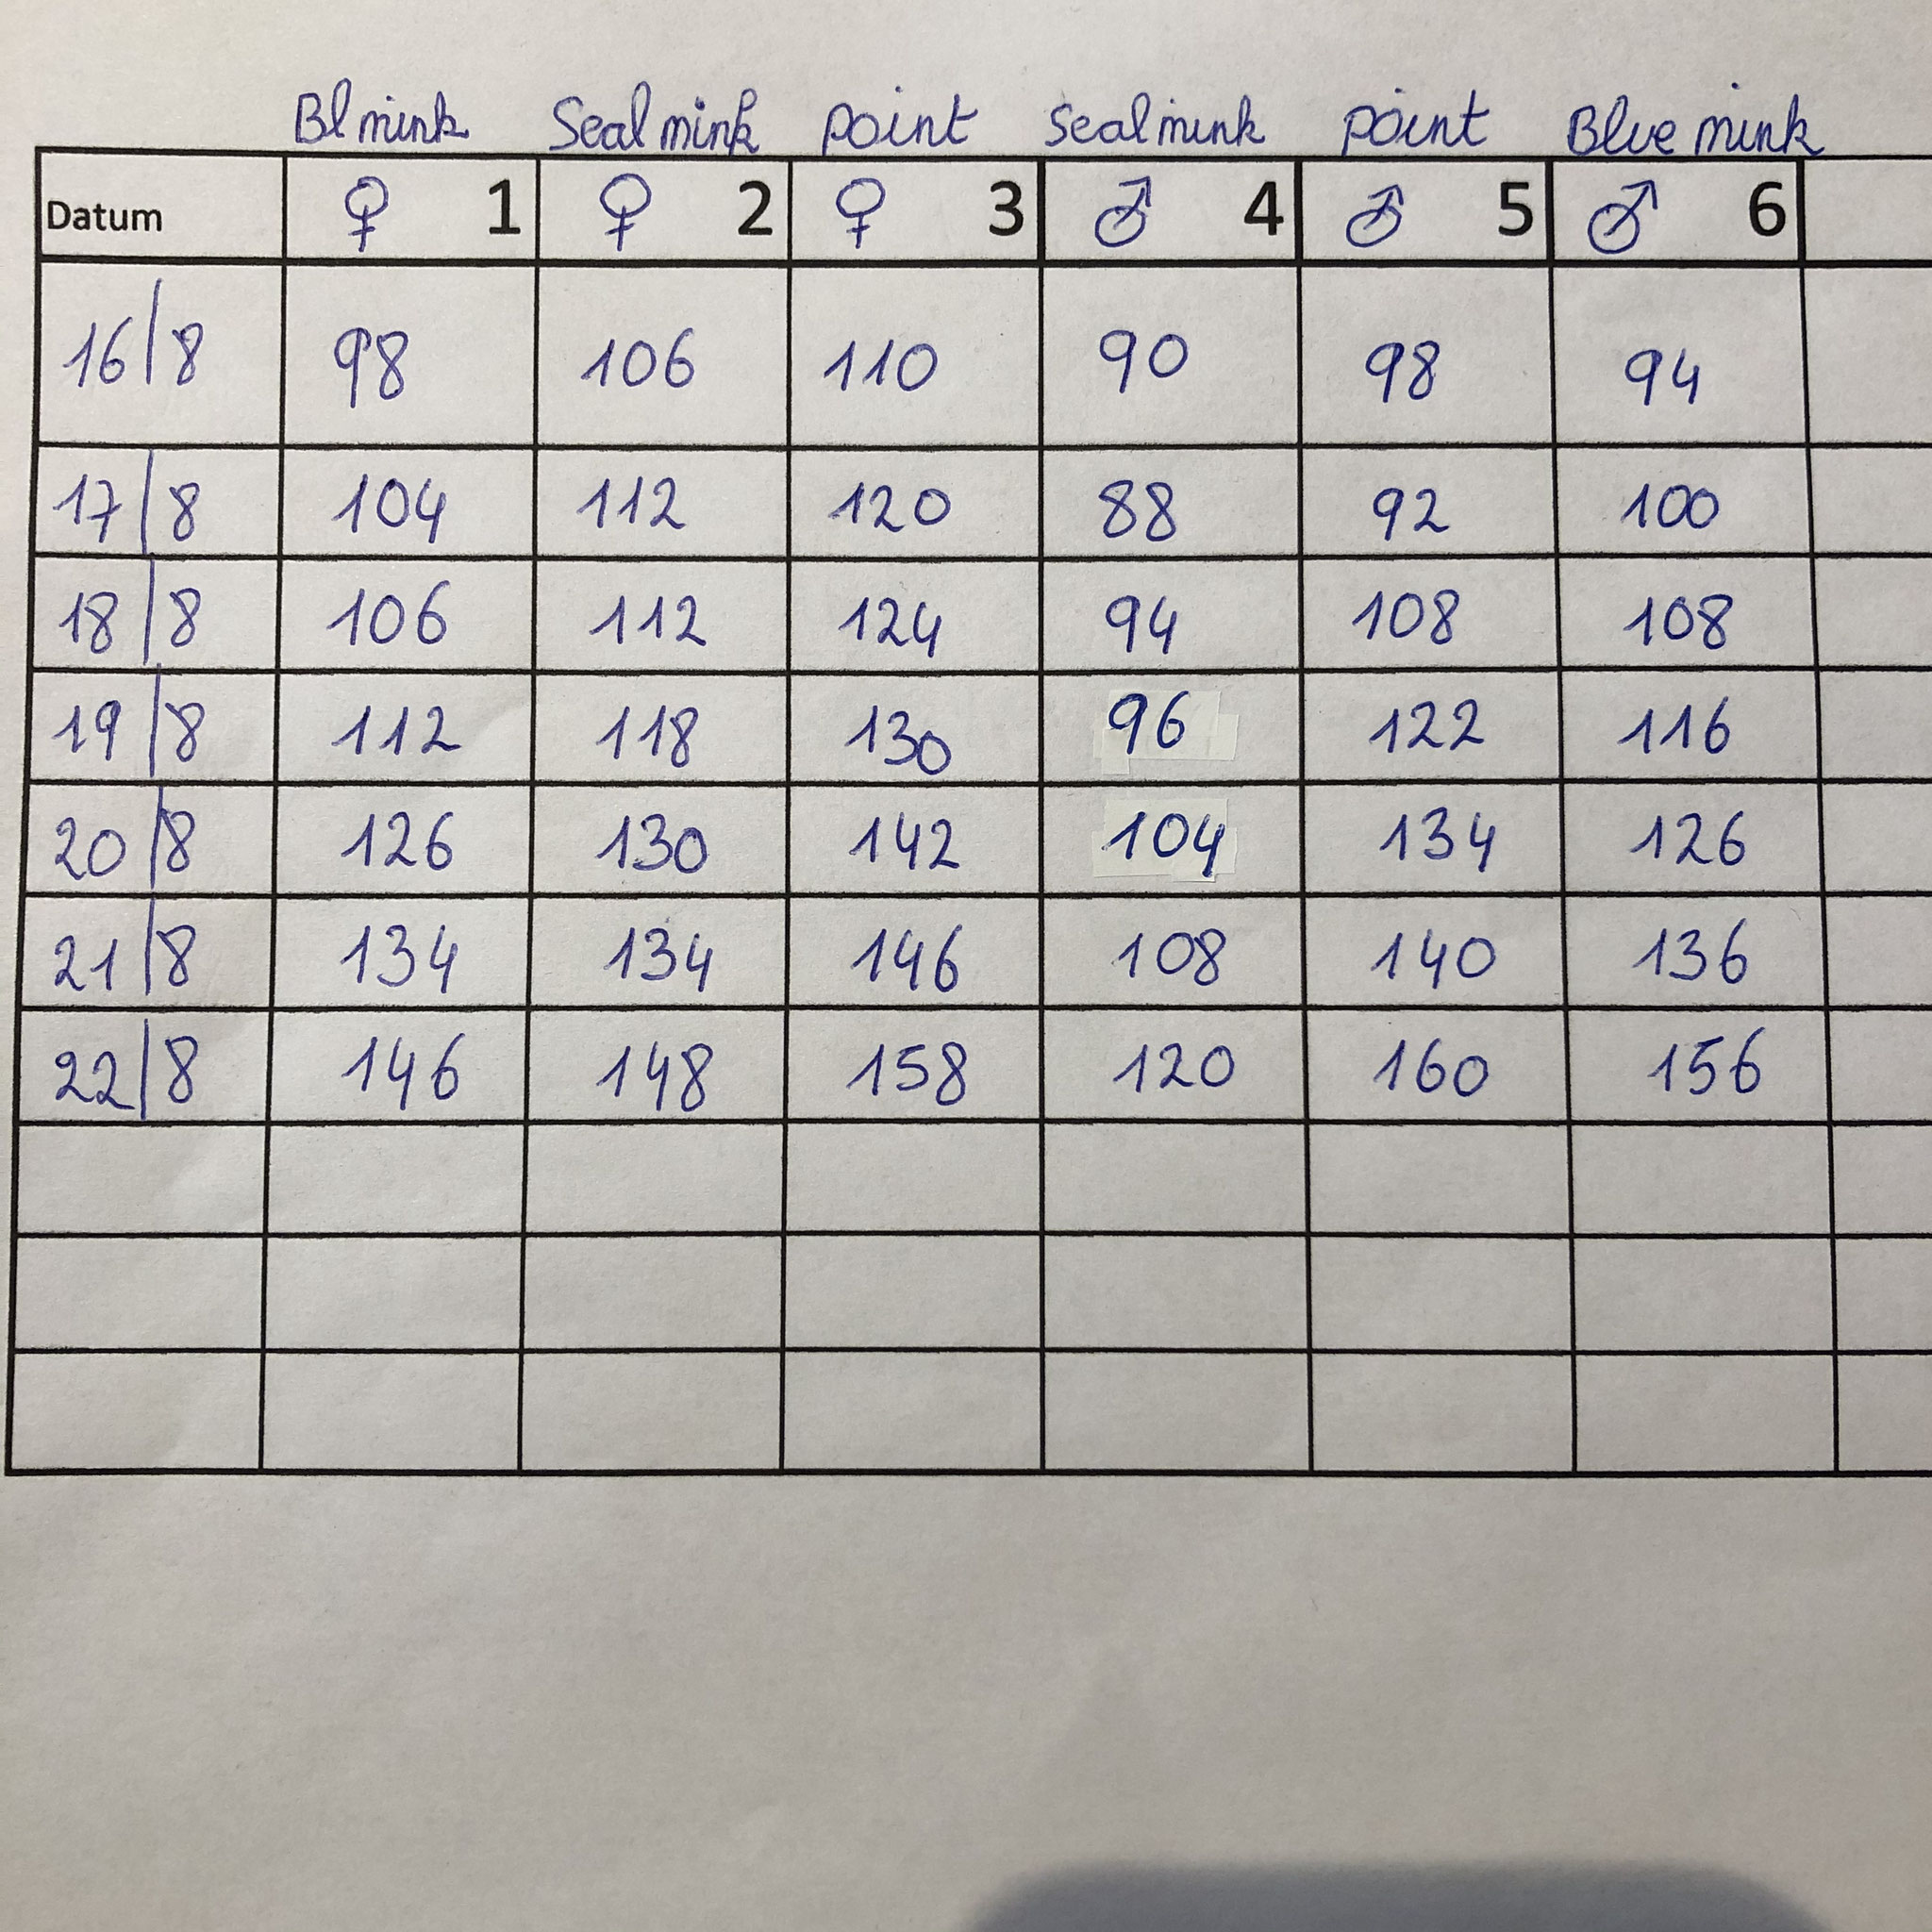 Bl mink Seal mink point Seal mink point Blue mink
Datum ♀ 1 ♀ 2 ♀ 3 ♂ 4 ♂ 5 ♂ 6
16/8 98 106 110 90 98 94
17/8 104 112 120 88 92 100
18/8 106 112 124 94 108 108
19/8 112 118 130 96 122 116
20/8 126 130 142 104 134 126
21/8 134 134 146 108 140 136
22/8 146 148 158 120 160 156